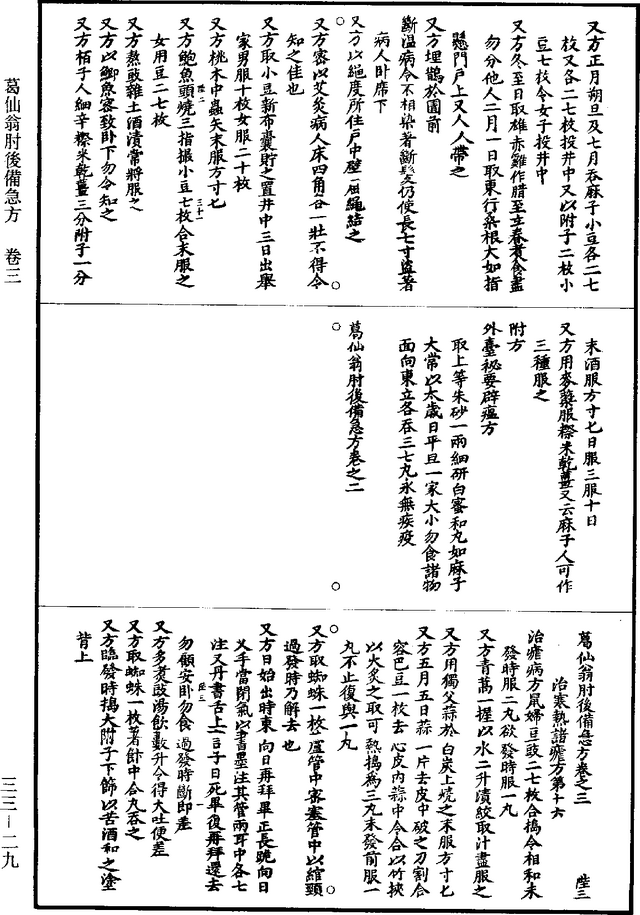 葛仙翁肘後備急方　卷三
又方正月朔旦及七月吞麻子小豆各二七
枚又各二七枚投井中又以附子二枚小
豆七枚令女子投井中
又方冬至日取雄赤雞作腊至立春煮食盡
勿分他人二月一日取東行桑根大如指
懸門戶上又人人帶之
又方埋鵲於圊前
斷溫病令不相染著斷髮仍使長七寸盜著
病人卧席下
又方以繩度所住戶中壁一屈繩結之
又方密以艾灸病人床四角各一壯不得令
知之佳也
又方取小豆新布囊貯之置井中三日出舉
家男服十枚女服二十枚
又方桃木中蟲矢末服方寸匕
又方鮑魚頭燒三指撮小豆七枚合末服之
女用豆二七枚
又方熬豉雜土酒漬常將服之
又方以鯽魚密致卧下勿令知之
又方栢子人細辛穄米乾薑三分附子一分
末酒服方寸匕日服三服十日
又方用麥櫱服穄米乾薑又云麻子人可作
三種服之
附方
外臺祕要辟瘟方
取上等朱砂一兩細研白蜜和丸如麻子
大常以太歲日平旦一家大小勿食諸物
面向東立各吞三七丸永無疾疫
葛仙翁肘後備急方卷之二
葛仙翁肘後備急方卷之三
陸三
治寒熱諸瘧方第十六
治瘧病方鼠婦豆豉二七枚合搗令相和未
發時服二丸欲發時服一丸
又方青蒿一握以水二升漬絞取汁盡服之
又方用獨父蒜於白炭上燒之末服方寸匕
又方五月五日蒜一片去皮中破之刀割合
容巴豆一枚去心皮內蒜中令合以竹挾
以火炙之取可熱搗為三丸未發前服一
丸不止復與一丸
又方取蜘蛛一枚蘆管中密塞管中以綰頸
過發時乃解去也
又方日始出時東向日再拜畢正長跪向日
叉手當閉氣以書墨注其管兩耳中各七
注又丹書舌上言子日死畢復再拜還去
勿顧安卧勿食過發時斷即差
又方多煮豉湯飲數升令得大吐便差
又方取蜘蛛一枚著飯中合丸吞之
又方臨發時搗大附子下篩以苦酒和之塗
背上
三三—二九